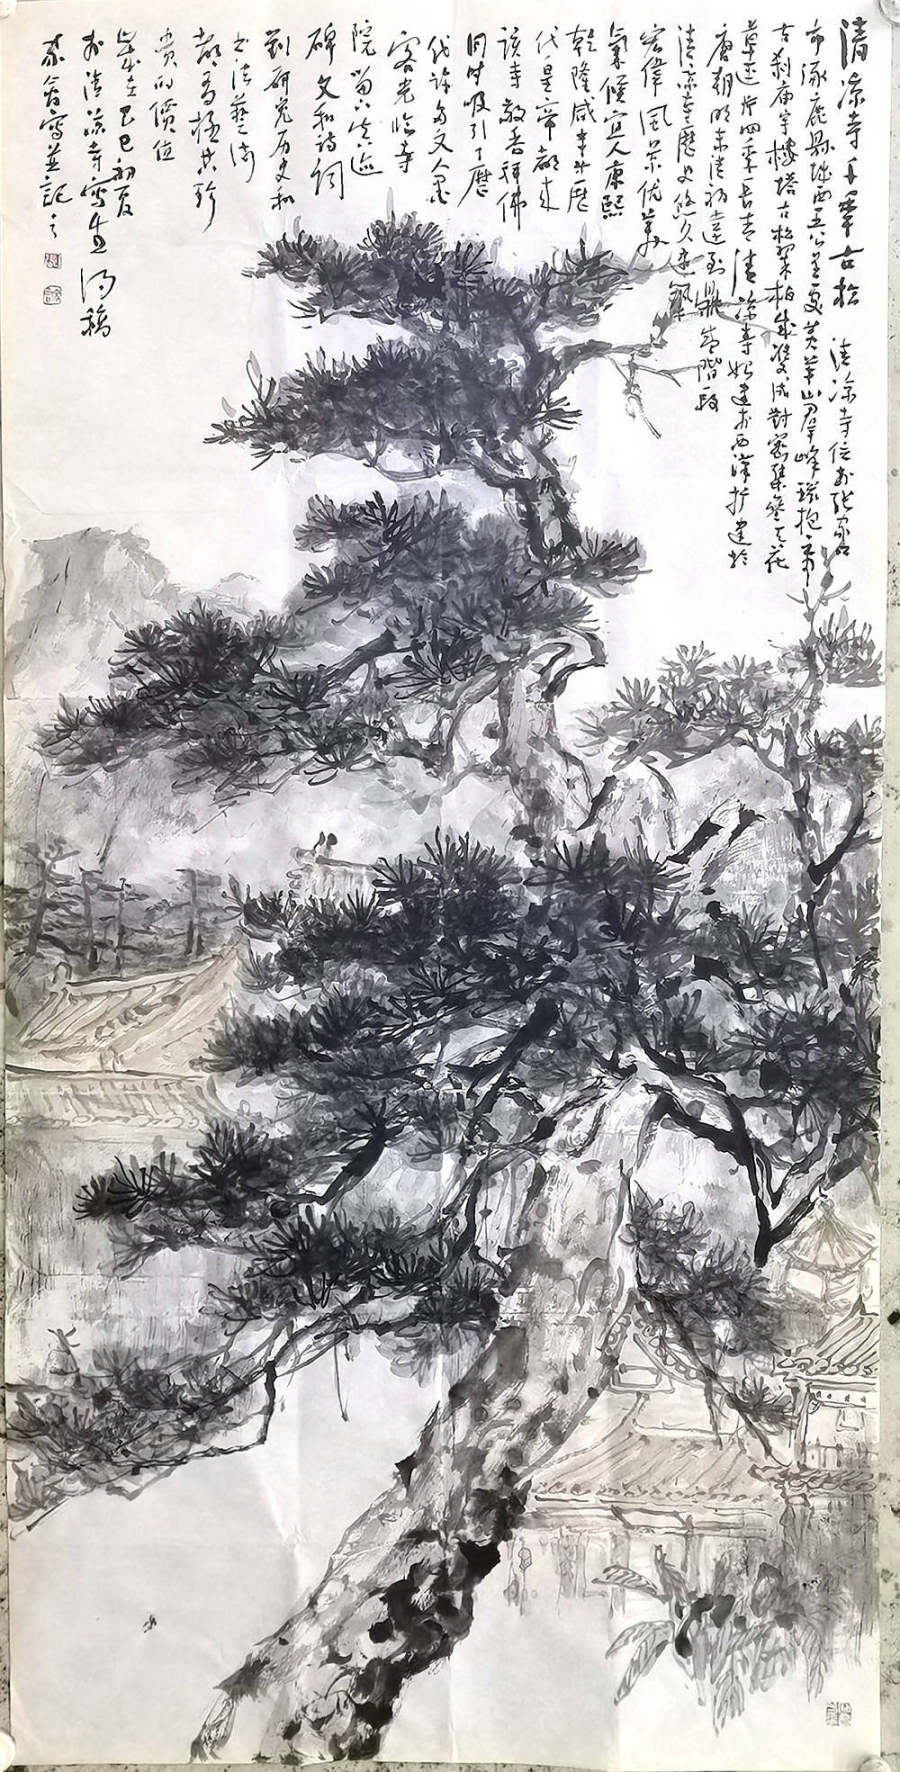 清凉寺千年古松 清凉寺位于张家口
市涿鹿县城西五公里处黄羊山群峰环抱
古刹庙宇楼塔古松翠柏成双成对密集参天花
草遍片四季长青清凉寺始建于西汉扩建于
唐朝明末清初达到鼎盛阶段
清凉寺历史悠久建筑
宏伟风景优美
气候宜人康熙
乾隆咸丰历
代皇帝都来
该寺敬香拜佛
同时吸引了历
代许多文人墨
客光临寺
院留下真迹
碑文和诗词
对研究历史和
书法艺术
都有极其珍
贵的价位
岁在己巳初夏
于清凉寺写生
写并记之